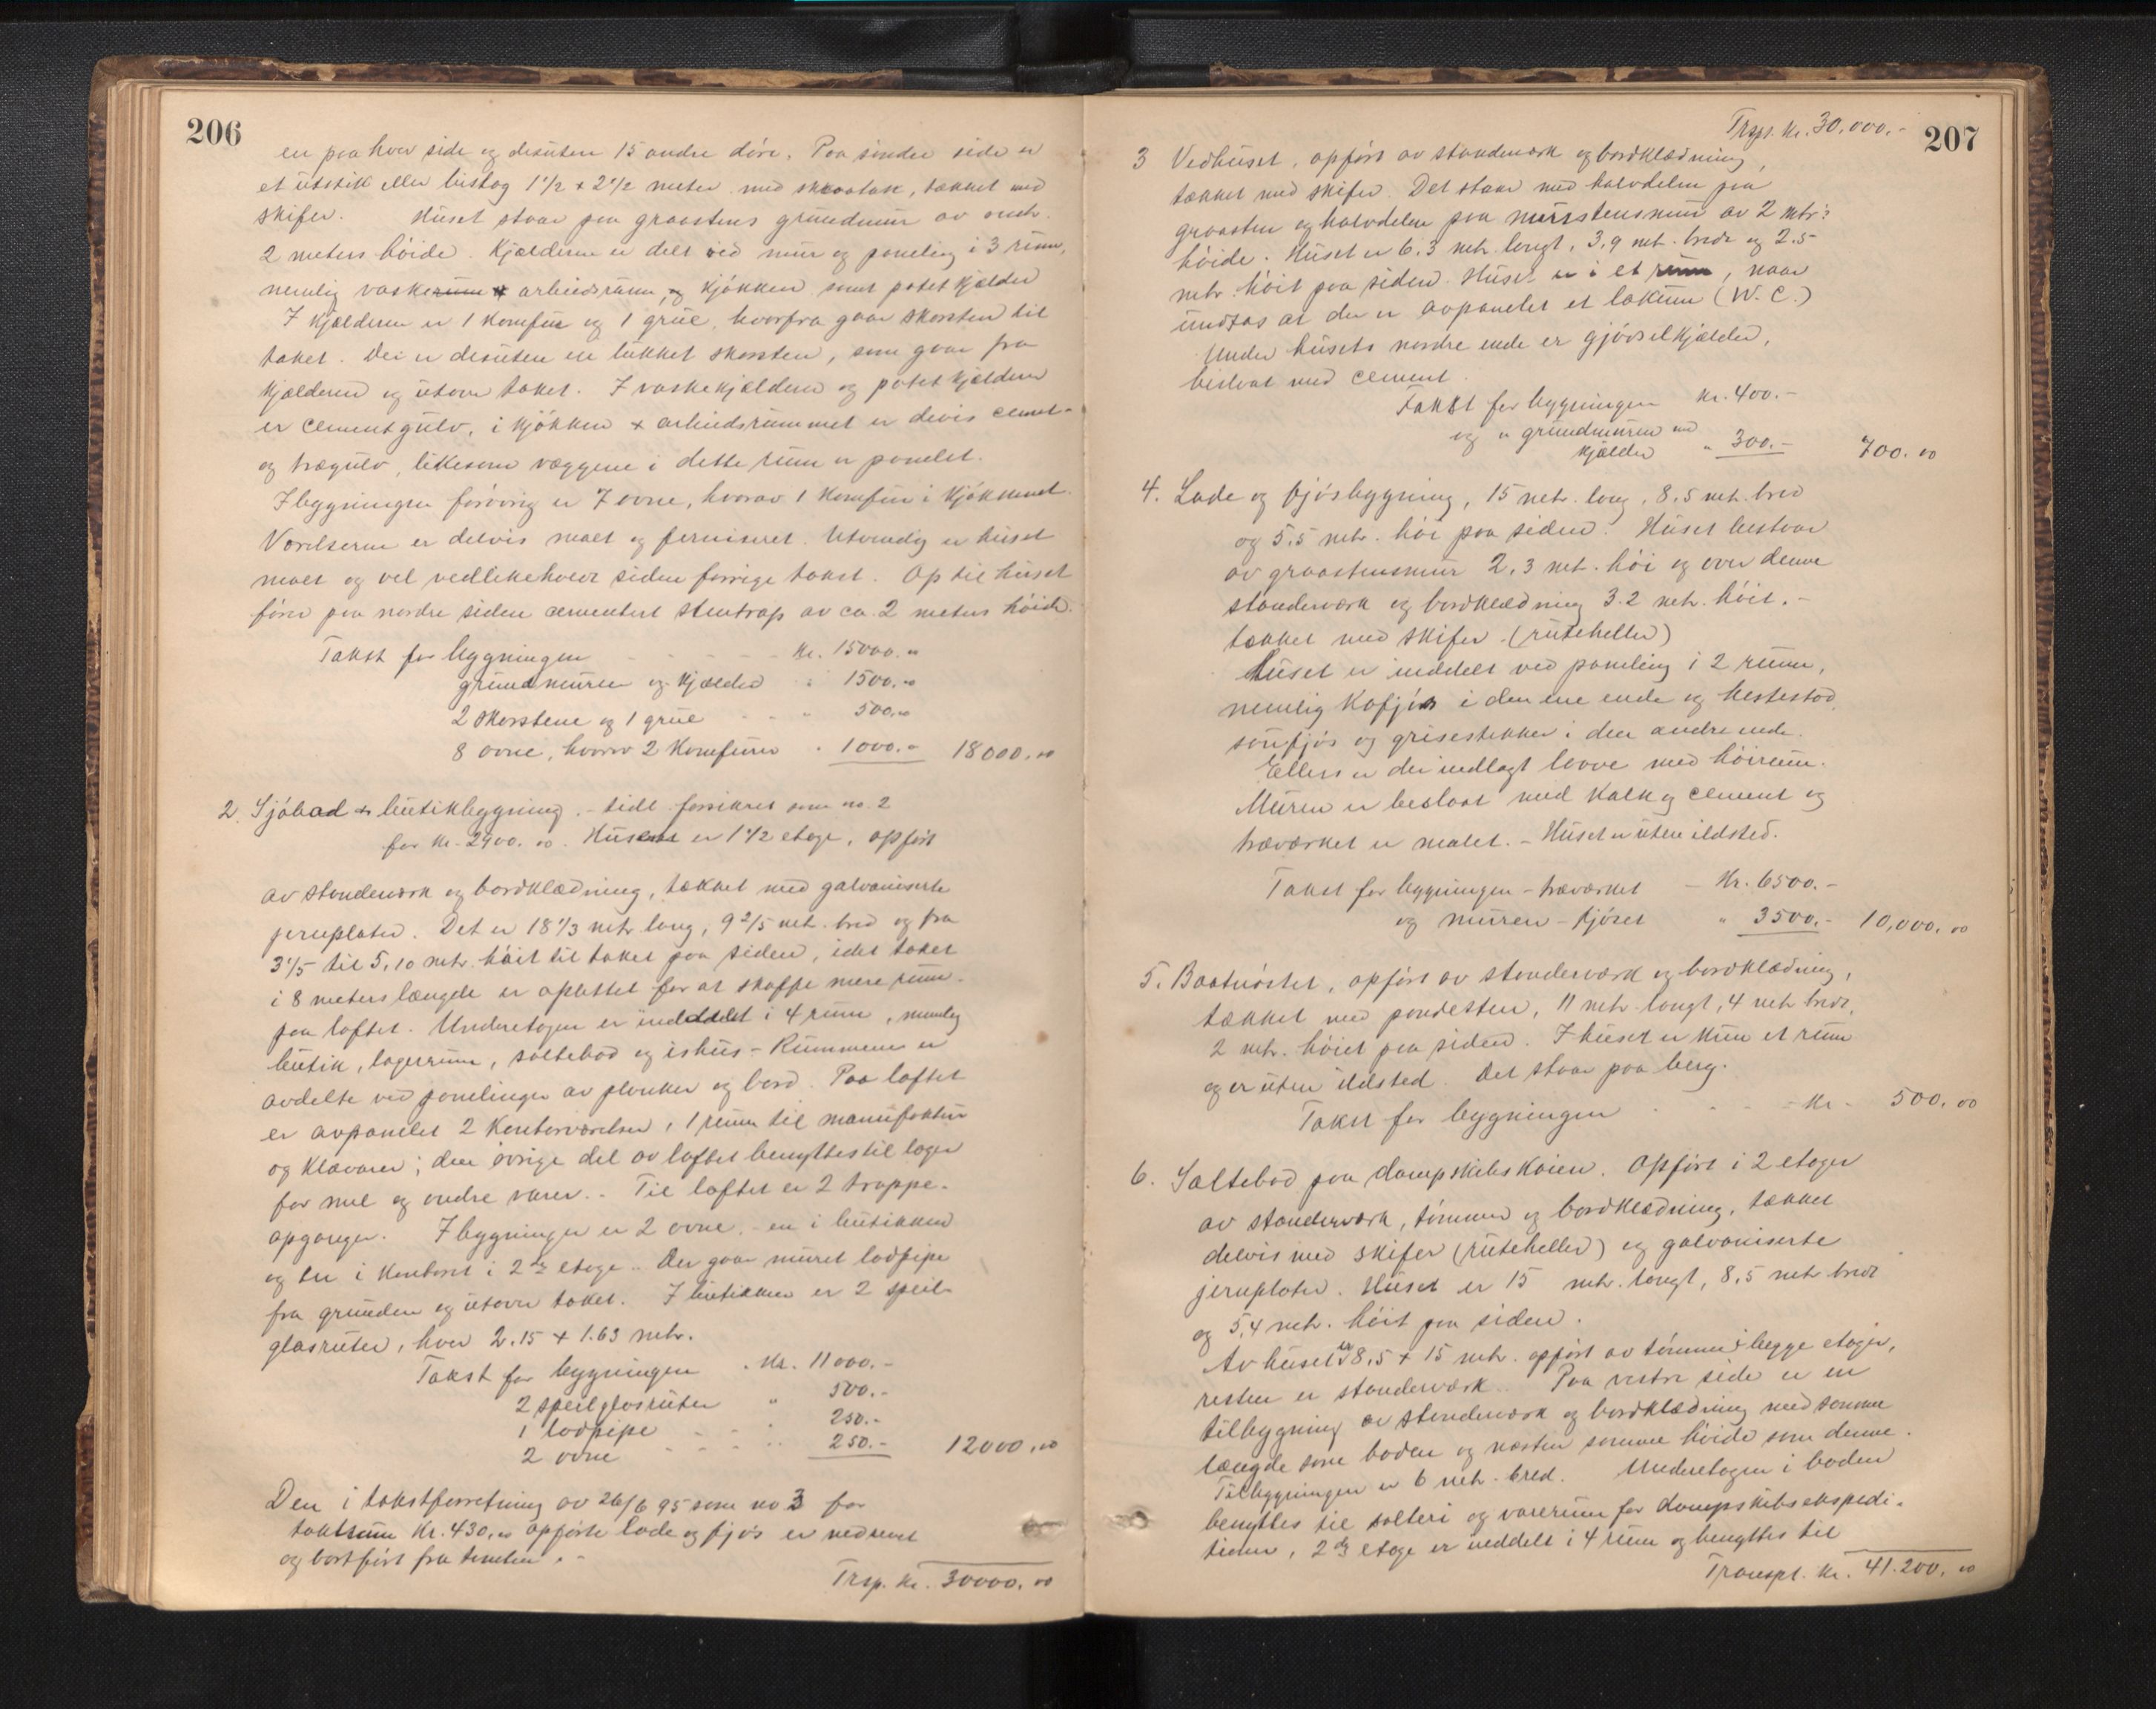 206
en paa hver side og desuten 15 andre döre. Paa söndre side er
et utstik eller bislag 1 1/2 x 2 1/2 meter med skraatak, tækket med
skifer. Huset staar paa graastens grundmur av omtr.
2 meters höide. Kjælderen er delt ved mur og paneling i 3 rum,
nemlig vaskerum & arbeidsrum, og kjökken samt potetkjælder
I kjælderen er 1 komfur og 1 grue, hvorfra gaar skorsten til
taket. Der er desuten en lukket skorsten, som gaar fra
kjælderen og utover taket. I vaskekjælderen og potetkjælderen
er cementgulv, i kjökken & arbeidsrummet er delvis cement-
og trægulv, likesom væggene i dette rum er panelet.
I bygningen forövrig er 7 ovne, hvorav 1 komfur i kjökkenet.
Værelserne er delvis malt og ferniseret. Utvendig er huset
malt og vel vedlikeholdt siden forrige takst. Op til huset
förer paa nordre siden cementert stentrap av ca 2 meters höide.
Takst for bygningen - - - - - kr. 15000.00
grundmuren og kjælder " 1500.00
2 skorstene og 1 grue - - " 500.00
8 ovne, hvorav 2 komfurer " 1000.00 18000.00
2. Sjöbod & butikbygning. - tidl. forsikret som no. 2
for kr. 2900.00. Huset er 1 1/2 etage, opfört
av standerværk og bordklædning, tækket med galvaniserte
jernplater. Det er 18 1/3 mtr. lang, 9 2/5 mtr. bred og fra
3 1/5 til 5,10 mtr. höit til taket paa siden, idet taket
i 8 meters længde er oplettet for at skaffe mere rum
paa loftet. Underetagen er inddelt i 4 rum, nemlig
butik, lagerrum, saltebod og ishus - Rummene er
avdelte ved panelinger av planker og bord. Paa loftet
er avpanelet 2 kontorværelser, 1 rum til manufaktur
og klævarer; den övrige del av loftet benyttes til lager
for mel og andre varer. - Til loftet er 2 trappe-
opganger. I bygningen er 2 ovne, - en i butikken
og en i kontoret i 2den etage. Der gaar muret lodpipe
fra grunden og utover taket. I butikken er 2 speil-
glasruter, hver 2.15 x 1.63 mtr.
Takst for bygningen . kr. 11000.-
2 speilglasruter " 500.-
1 lodpipe - - " 250.-
2 ovne - - - " 250.- 12000.00
Den i takstforretning av 26/6 95 som no 3 for
taktsum kr. 430,00 opförte lade og fjös er nedrevet
og bortfört fra tomten. -
Trsp. kr. 30000.00
207
Trspt. kr. 30,000.-
3 Vedhuset, opfört av standerværk og bordklædning,
tækket med skifer. Det staar med halvdelen paa
graasten og halvdelen paa murstensmur av 2 mtr's
höide. Huset er 6.3 mtr. langt, 3.9 mtr. bredt og 2.5
mtr. höit paa siden. Huset er i et rum, naar
undtas at der er avpanelet et lokum (W. C.)
Under husets nordre ende er gjödselkjælder,
beslaat med cement.
Takst for bygningen kr. 400.-
og " grundmuren med
kjælder " 300.- 700.00
4. Lade og fjösbygning, 15 mtr. lang, 8.5 mtr. bred
og 5.5 mtr. höi paa siden. Huset bestaar
av graastensmur 2.3 mtr. höi og over denne
standerværk og bordklædning 3.2 mtr. höit. -
tækket med skifer. (ruteheller)
Huset er inddelt ved paneling i 2 rum,
nemlig kofjös i den ene ende og hestestod,
saufjös og grisestekker i den andre ende.
Ellers er der indlagt lovve med höirum.
Muren er beslaat med kalk og cement og
træværket er malet. - Huset er uten ildsted.
Takst for bygningen - træværket - kr. 6500.-
og muren - fjöset " 3500.- 10,000.00
5. Baatnöstet, opfört av standerværk og bordklædning,
tækket med pandesten, 11 mtr. langt, 4 mtr. bredt,
2 mtr. höiet paa siden. I huset er kun et rum
og er uten ildsted. Det staar paa berg.
Takst for bygningen - - - kr - 500.00
6. Saltebod paa dampskibskaien. Opfört i 2 etager
av standerværk, tömmer og bordklædning, tækket
delvis med skifer (rutehelled) og galvaniserte
jernplater. Huset er 15 mtr. langt, 8,5 mtr. bredt
og 5,4 mtr. höit paa siden.
Av huset er 8.5 x 15 mtr. opfört av tömmer i begge etager,
resten er standerværk. Paa vestre side er en
tilbygning av standerværk og bordklædning med samme
længde som boden og næsten samme höide som denne.
Tilbygningen er 6 mtr. bred. Underetagen i boden
benyttes til salteri og varerum for dampskibsekspedi-
tionen, 2den etage er inddelt i 4 rum og benyttes til
Transpt. kr. 41.200.00